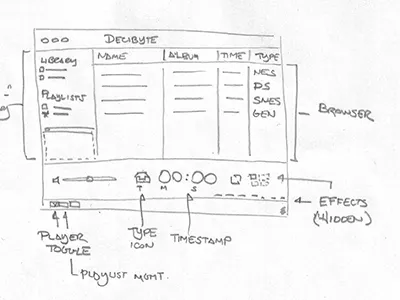 DECIBYTE
LIBRARY
NAME
ALBUM
TIME
TYPE
NES
PS
SNES
GEN
PLAYLISTS
BROWSER
T M S
EFFECTS
(HIDDEN)
PLAYER
TOGGLE
TYPE
ICON
TIMESTAMP
PLAYLIST MGMT.